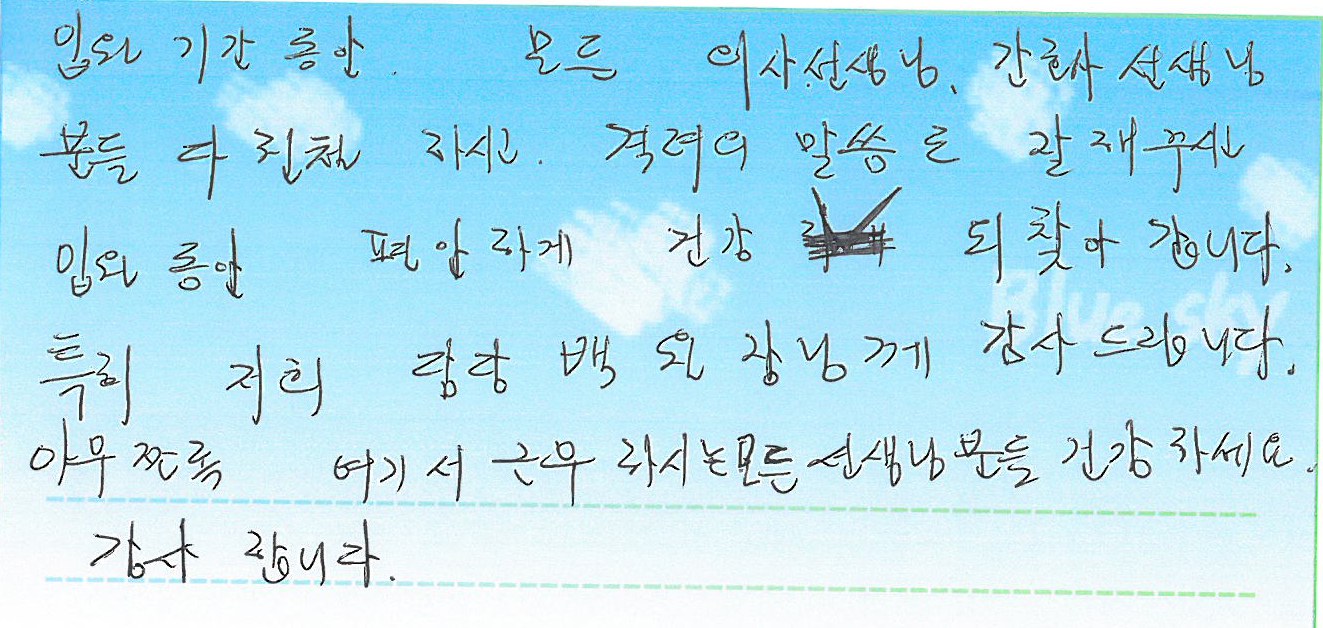 입원 기간 동안. 모든 의사선생님, 간호사 선생님
분들 다 친절 하시고. 격려의 말씀 로 잘 해주신
입원 동안 편안하게 건강 되찾아 갑니다.
Blue sky
특히 저희 담당 백 원장님께 감사드립니다.
아무쪼록 여기서 근무 하시는모든 선생님분들 건강하세요.
감사 합니다.